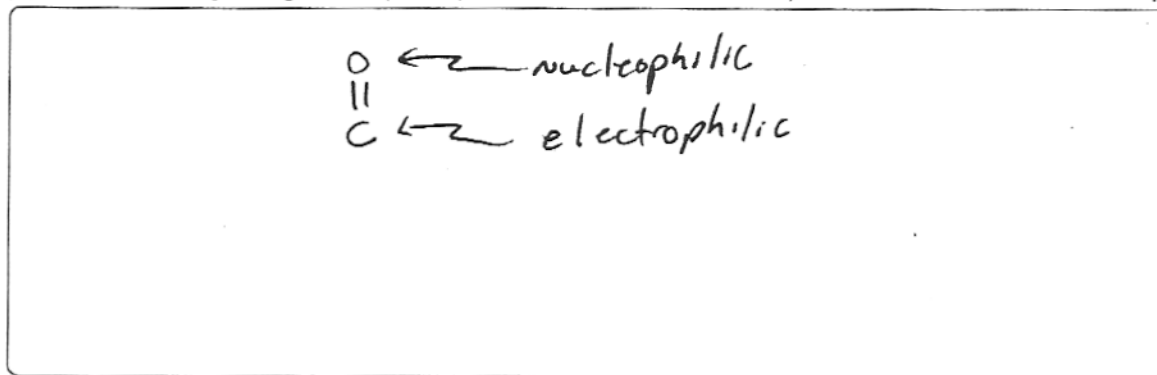 O ← nucleophilic
||
C ← electrophilic